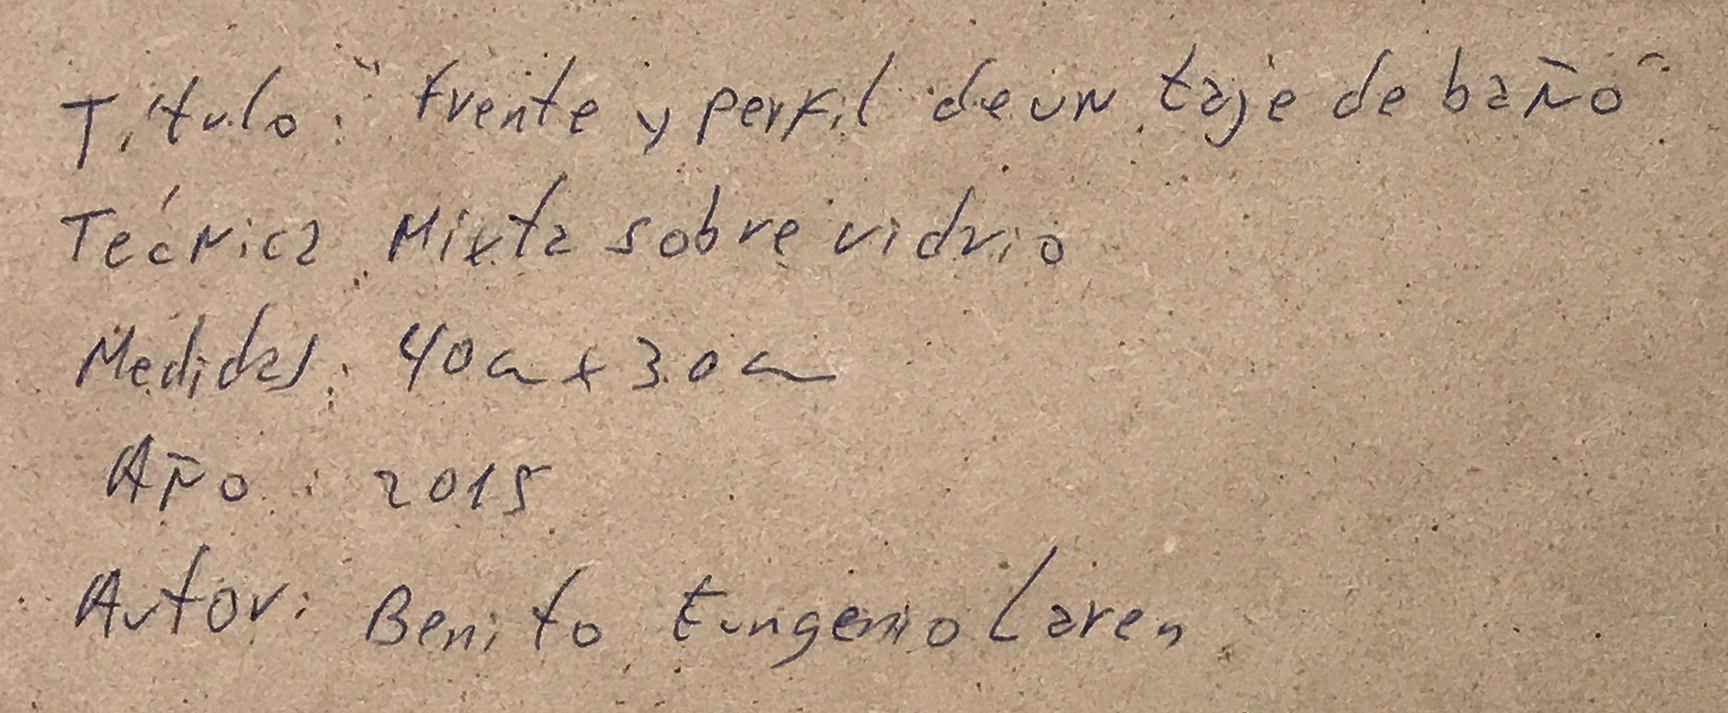 Título: "frente y perfil de un taje de baño"
Técnica Mixta sobre vidrio
Medidas: 40cm x 30cm
Año: 2015
Autor: Benito Eungenio Laren